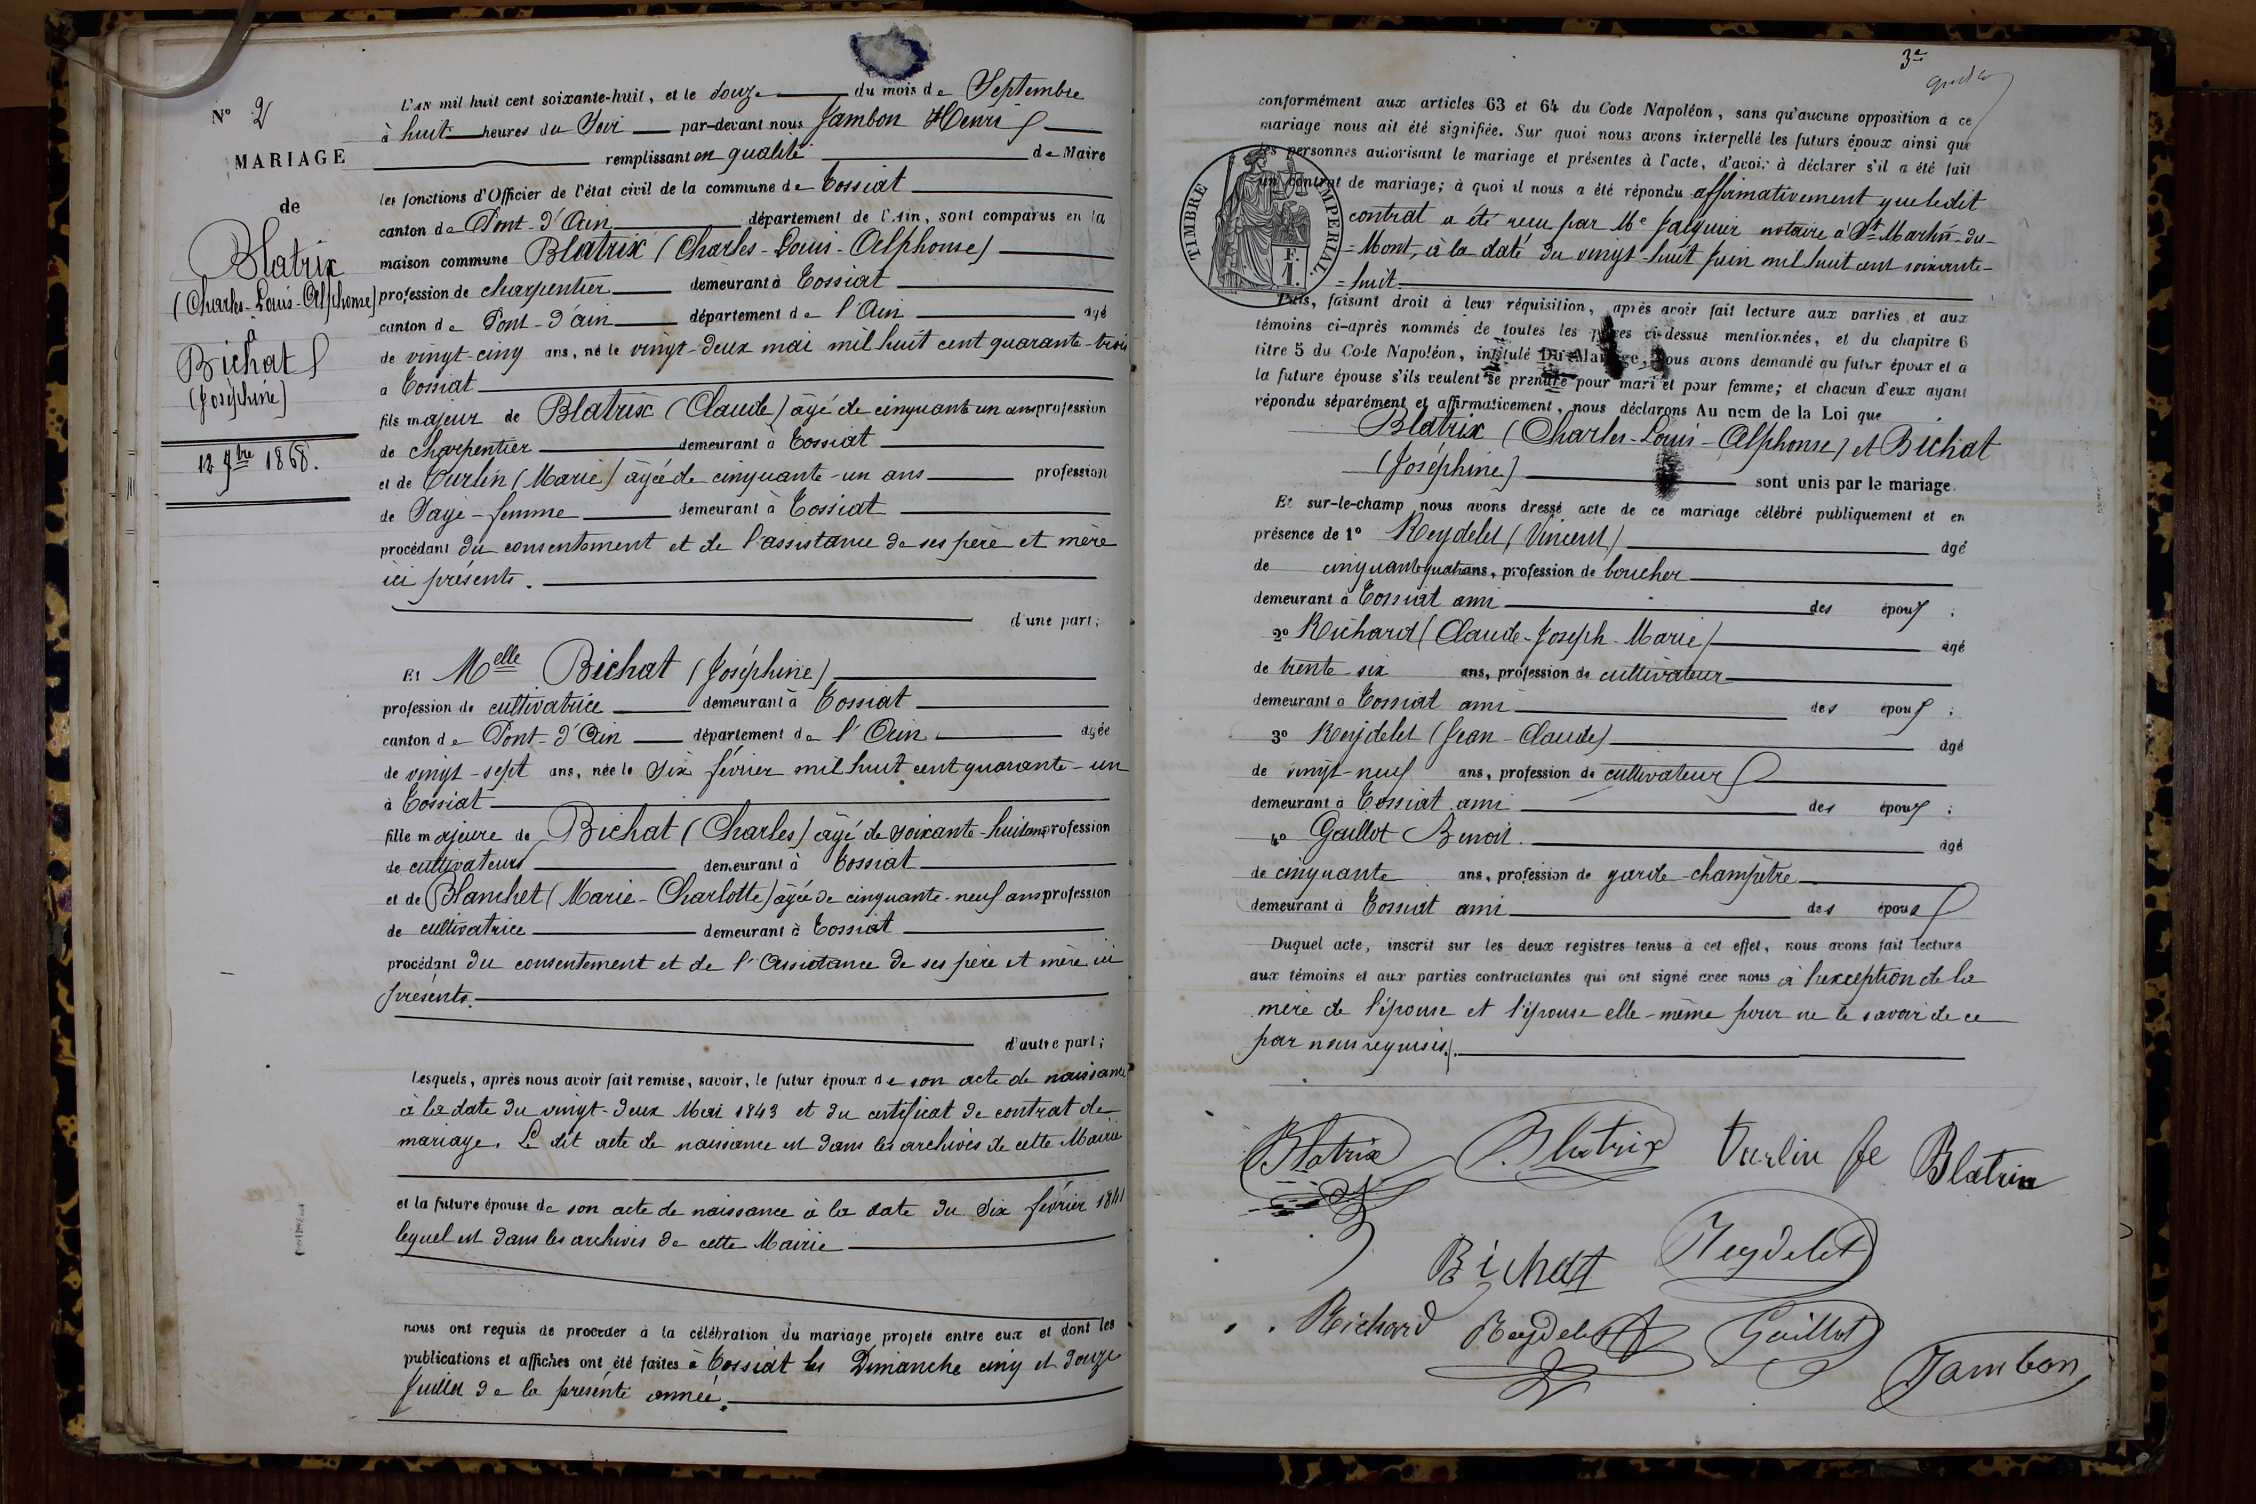 N° 2
MARIAGE
de
Blatrix
(Charles-Louis-Alphonse)
à
Bichat
(Joséphine)
12 7bre 1868.
L'AN mil huit cent soixante-huit, et le douze du mois de Septembre
à huit heures du Soir par-devant nous Jambon Henri
remplissant en qualité de Maire
les fonctions d'Officier de l'état civil de la commune de Tossiat
canton de Pont-d'Ain département de l'Ain, sont comparus en la
maison commune Blatrix (Charles-Louis-Alphonse)
profession de charpentier demeurant à Tossiat
canton de Pont-d'ain département de l'Ain âgé
de vingt-cinq ans, né le vingt-deux mai mil huit cent quarante-trois
à Tossiat
fils majeur de Blatrix (Claude) âgé de cinquante un ans profession
de charpentier demeurant à Tossiat
et de Turlin (Marie) âgée de cinquante-un ans profession
de Sage-femme demeurant à Tossiat
procédant du consentement et de l'assistance de ses père et mère
ici présents.
d'une part;
Et Melle Bichat (Joséphine)
profession de cultivatrice demeurant à Tossiat
canton de Pont-d'Ain département de l'Ain âgée
de vingt-sept ans, née le Six février mil huit cent quarante-un
à Tossiat
fille majeure de Bichat (Charles) âgé de soixante-huit ans profession
de cultivateur demeurant à Tossiat
et de Blanchet (Marie-Charlotte) âgée de cinquante-neuf ans profession
de cultivatrice demeurant à Tossiat
procédant du consentement et de l'Assistance de ses père et mère ici
présents.
d'autre part;
Lesquels, après nous avoir fait remise, savoir, le futur époux de son acte de naissance
à la date du vingt-deux Mai 1843 et du certificat de contrat de
mariage. Le dit acte de naissance est dans les archives de cette Mairie
et la future épouse de son acte de naissance à la date du Six février 1841
lequel est dans les archives de cette Mairie
nous ont requis de procéder à la célébration du mariage projeté entre eux et dont les
publications et affiches ont été faites à Tossiat les Dimanche cinq et douze
Juillet de la présente année.
3e
conformément aux articles 63 et 64 du Code Napoléon, sans qu'aucune opposition à ce
mariage nous ait été signifiée. Sur quoi nous avons interpellé les futurs époux ainsi que
les personnes autorisant le mariage et présentes à l'acte, d'avoir à déclarer s'il a été fait
un contrat de mariage; à quoi il nous a été répondu affirmativement que ledit
contrat a été reçu par Me Jacquier notaire à St Martin-du-
=Mont, à la date du vingt-huit Juin mil huit cent soixante-
=huit.
TIMBRE IMPERIAL.
F.
1.
Puis, faisant droit à leur réquisition, après avoir fait lecture aux parties et aux
témoins ci-après nommés de toutes les pièces ci-dessus mentionnées, et du chapitre 6
titre 5 du Code Napoléon, intitulé Du Mariage, nous avons demandé au futur époux et à
la future épouse s'ils veulent se prendre pour mari et pour femme; et chacun d'eux ayant
répondu séparément et affirmativement, nous déclarons Au nom de la Loi que
Blatrix (Charles-Louis-Alphonse) et Bichat
(Joséphine) sont unis par le mariage.
Et sur-le-champ nous avons dressé acte de ce mariage célébré publiquement et en
présence de 1° Reydelet (Vincent) âgé
de cinquante quatre ans, profession de boucher
demeurant à Tossiat ami des époux ;
2° Richard (Claude-Joseph-Marie) âgé
de trente-six ans, profession de cultivateur
demeurant à Tossiat ami des époux ;
3° Reydelet (Jean-Claude) âgé
de vingt-neuf ans, profession de cultivateur
demeurant à Tossiat ami des époux ;
4° Gaillot Benoit. âgé
de cinquante ans, profession de garde-champêtre
demeurant à Tossiat ami des époux
Duquel acte, inscrit sur les deux registres tenus à cet effet, nous avons fait lecture
aux témoins et aux parties contractantes qui ont signé avec nous à l'exception de la
mère de l'épouse et l'épouse elle-même pour ne le savoir de ce
par nous requises.
Blatrix Blatrix Turlin fe Blatrix
Bichat Reydelet
Richard Reydelet Gaillot
Jambon